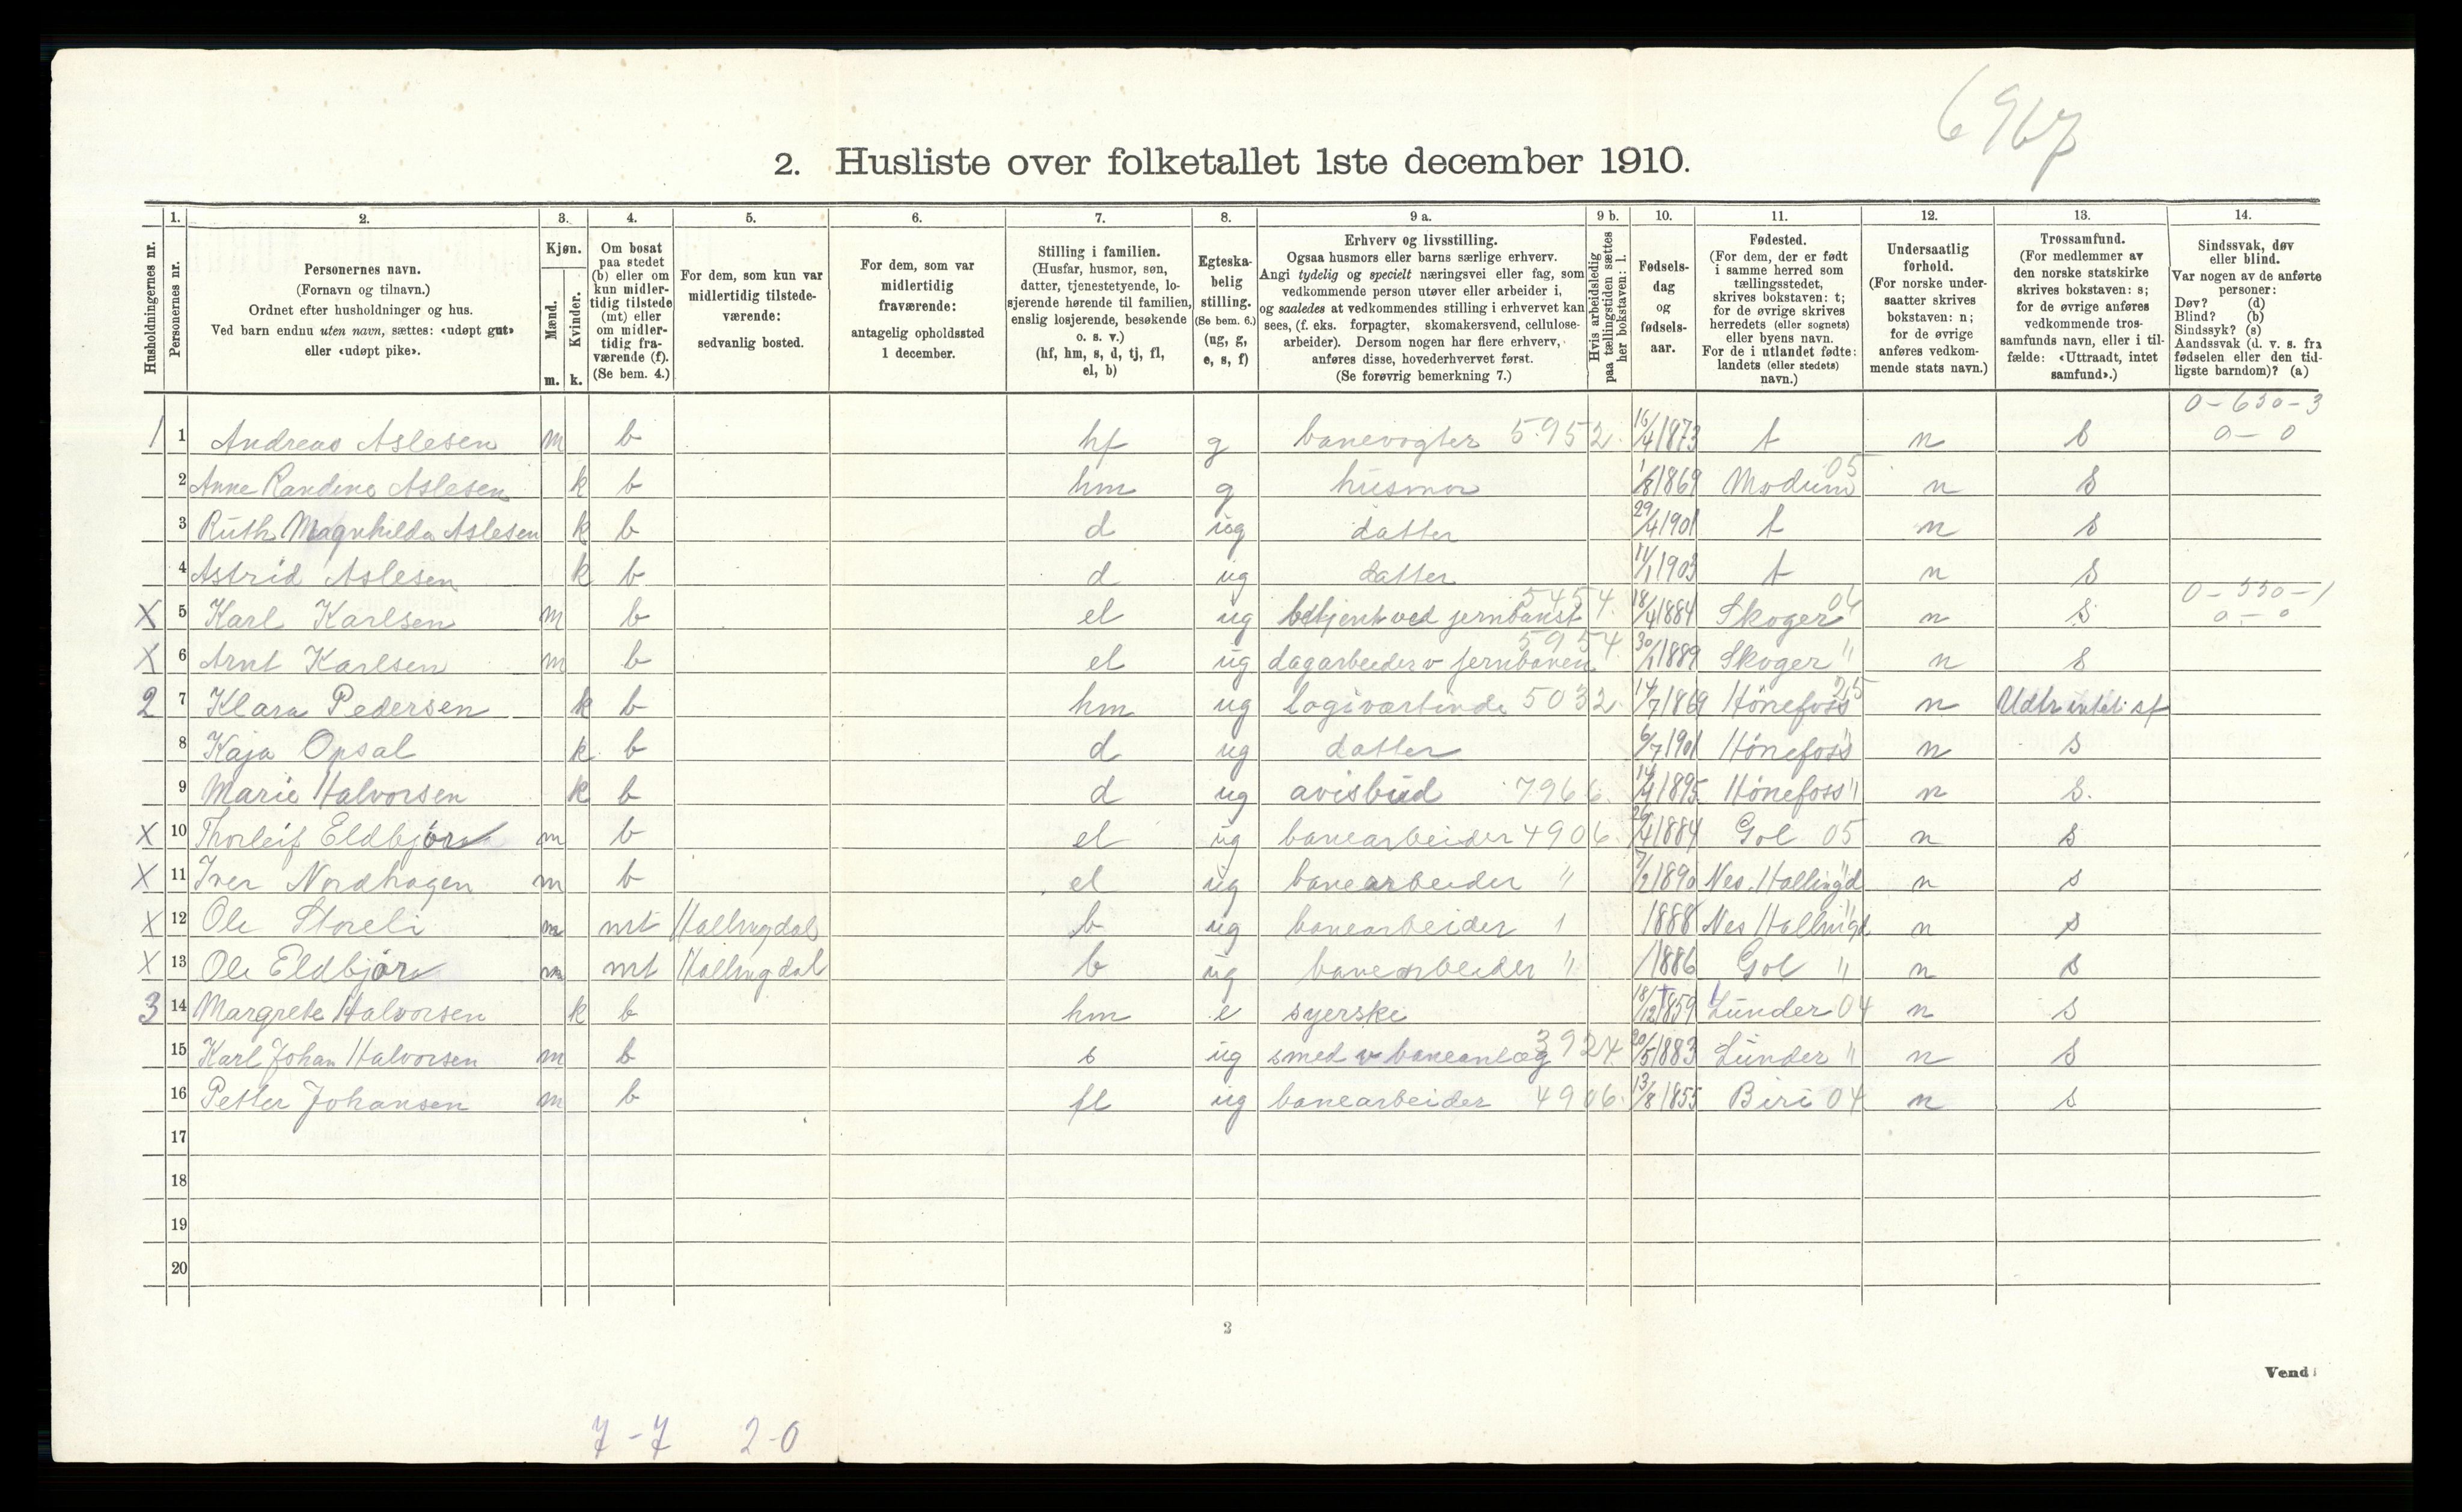 6967
2. Husliste over folketallet 1ste december 1910.
Husholdningernes nr.
1. Personernes nr.
2. Personernes navn.
(Fornavn og tilnavn.)
Ordnet efter husholdninger og hus.
Ved barn endnu uten navn, sættes: «udøpt gut»
eller «udøpt pike».
3. Kjøn.
Mænd. m.
Kvinder. k.
4. Om bosat
paa stedet
(b) eller om
kun midler-
tidig tilstede
(mt) eller
om midler-
tidig fra-
værende (f).
(Se bem. 4.)
5. For dem, som kun var
midlertidig tilstede-
værende:
sedvanlig bosted.
6. For dem, som var
midlertidig
fraværende:
antagelig opholdssted
1 december.
7. Stilling i familien.
(Husfar, husmor, søn,
datter, tjenestetyende, lo-
sjerende hørende til familien,
enslig losjerende, besøkende
o. s. v.)
(hf, hm, s, d, tj, fl,
el, b)
8. Egteska-
belig
stilling.
(Se bem. 6.)
(ug, g,
e, s, f)
9 a. Erhverv og livsstilling.
Ogsaa husmors eller barns særlige erhverv.
Angi tydelig og specielt næringsvei eller fag, som
vedkommende person utøver eller arbeider i,
og saaledes at vedkommendes stilling i erhvervet kan
sees, (f. eks. forpagter, skomakersvend, cellulose-
arbeider). Dersom nogen har flere erhverv,
anføres disse, hovederhvervet først.
(Se forøvrig bemerkning 7.)
9 b. Hvis arbeidsledig
paa tællingstiden sættes
her bokstaven: l.
10. Fødsels-
dag
og
fødsels-
aar.
11. Fødested.
(For dem, der er født
i samme herred som
tællingsstedet,
skrives bokstaven: t;
for de øvrige skrives
herredets (eller sognets)
eller byens navn.
For de i utlandet fødte:
landets (eller stedets)
navn.)
12. Undersaatlig
forhold.
(For norske under-
saatter skrives
bokstaven: n;
for de øvrige
anføres vedkom-
mende stats navn.)
13. Trossamfund.
(For medlemmer av
den norske statskirke
skrives bokstaven: s;
for de øvrige anføres
vedkommende tros-
samfunds navn, eller i til-
fælde: «Uttraadt, intet
samfund».)
14. Sindssvak, døv
eller blind.
Var nogen av de anførte
personer:
Døv? (d)
Blind? (b)
Sindssyk? (s)
Aandssvak (d. v. s. fra
fødselen eller den tid-
ligste barndom)? (a)
0-650-3
1 1 Andreas Aslesen m b hf g banevogter 5952. 16/4 1873 t n s 0-0
2 Anne Randine Aslesen k b hm g husmor 1/8 1869 Modum 05 n s
3 Ruth Magnhilda Aslesen k b d ug datter 29/4 1901 t n s
4 Astrid Aslesen k b d ug datter 11/1 1903 t n s
X 5 Karl Karlsen m b el ug betjent ved jernbanst 5454. 18/4 1884 Skoger 04 n s 0-550-1 0-0
X 6 Arnt Karlsen m b el ug dagarbeider v jernbanen 5954. 30/1 1889 Skoger " n s
2 7 Klara Pedersen k b hm ug logivartinde 5032. 14/7 1869 Hönefoss 25 n Udtr intet sf
8 Kaja Opsal k b d ug datter 6/7 1901 Hönefoss " n s
9 Marie Halvorsen k b d ug avisbud 7966. 14/4 1895 Hönefoss " n s.
X 10 Thorleif Eldbjör m b el ug banearbeider 4906. 26/4 1884 Gol 05 n s
X 11 Iver Nordhagen m b el ug banearbeider " 7/2 1890 Nes. Hallingd " n s
X 12 Ole Storeli m mt Hallingdal b ug banearbeider 1 1888 Nes Hallingd " n s
X 13 Ole Eldbjör m mt Hallingdal b ug banearbeider " 1886 Gol " n s
3 14 Margrete Halvorsen k b hm e syerske 18/12 1859 Lunder 04 n s
15 Karl Johan Halvorsen m b s ug smed v baneanlæg 3924. 20/5 1883 Lunder " n s
16 Petter Johansen m b fl ug banearbeider 4906. 13/8 1855 Biri 04 n s
17
18
19
20
2
Vend
7-7 2-0